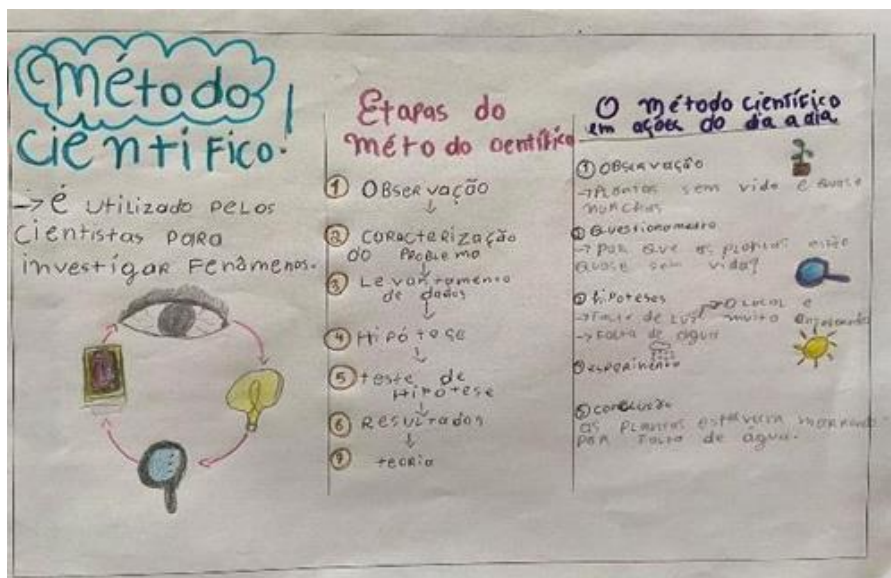 Método
Científico!
→ é utilizado pelos
cientistas para
investigar fenômenos.
Etapas do
método científico
① Observação
↓
② Caracterização
do problema
↓
③ Levantamento
de dados
↓
④ Hipótese
↓
⑤ teste de
Hipótese
↓
⑥ Resultados
↓
⑦ teoria
O método científico
em ações do dia a dia
① Observação
→ Plantas sem vida e quase
murchas
② Questionamento
→ Por que as plantas estão
quase sem vida?
③ hipóteses
→ Falta de luz → O local é
muito
→ Falta de água
④ experimento
⑤ conclusão
as plantas estavam morrendo
por falta de água.